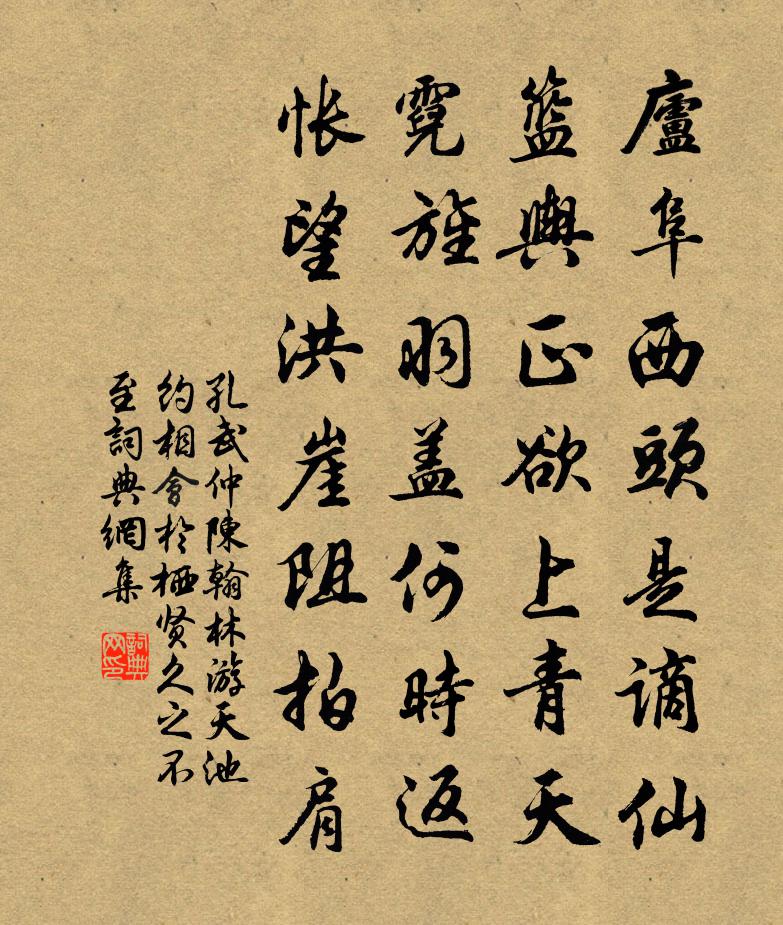 廬阜西頭是謫仙
籃輿正欲上青天
霓旌羽蓋何時返
悵望洪崖阻拍肩
孔武仲陳翰林游天池
約相會於栖賢久之不
至詞典網集
詞典
网印